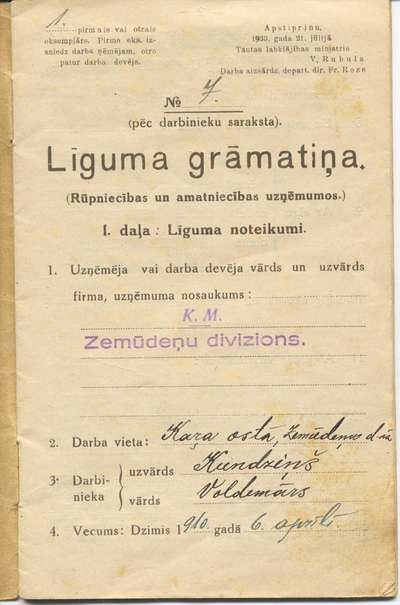 1. pirmais vai otrais
eksemplārs. Pirmo eks. iz-
sniedz darba ņēmējam, otro
patur darba devējs.
Apstiprinu,
1933. gada 21. jūlijā
Tautas labklājības ministris
V. Rubulis
Darba aizsardz. depart. dir. Fr. Roze
№ 7.
(pēc darbinieku saraksta).
Līguma grāmatiņa.
(Rūpniecības un amatniecības uzņēmumos.)
I. daļa: Līguma noteikumi.
1. Uzņēmēja vai darba devēja vārds un uzvārds
firma, uzņēmuma nosaukums:
K. M.
Zemūdeņu divizions.
2. Darba vieta: Kaŗa ostā, Zemūdeņu d-nā
3. Darbi-
nieka
uzvārds Kundziņš
vārds Voldemārs
4. Vecums: Dzimis 1910. gadā 6. aprīlī.